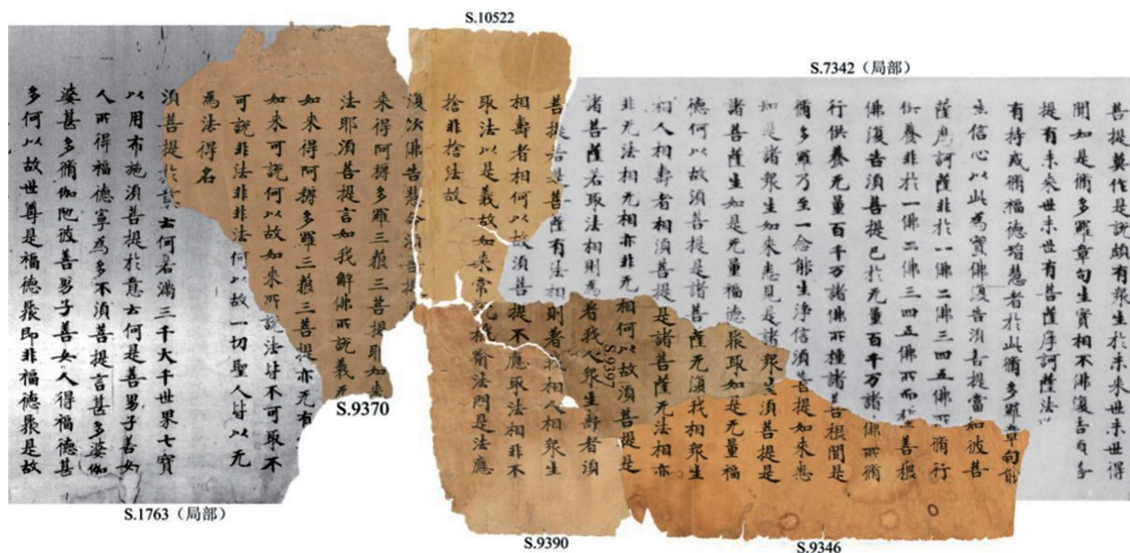 S.10522
S.7342（局部）
菩提莫作是說頗有眾生於未來世末世得
聞如是脩多羅章句生實相不佛復告須菩
提有未來世末世有菩薩摩訶薩法
有持戒脩福德智慧者於此脩多羅章句能
生信心以此為實佛復告須菩提當知彼菩
薩摩訶薩非於一佛二佛三四五佛所脩行
供養非於一佛二佛三四五佛所而種善根
佛復告須菩提已於无量百千万諸佛所脩
行供養无量百千万諸佛所種諸善根聞是
脩多羅乃至一念能生淨信須菩提如来悉
知是諸眾生如来悉見是諸眾生須菩提是
諸菩薩生如是无量福德聚取如是无量福
德何以故須菩提是諸菩薩无復我相眾生
相人相壽者相須菩提是諸菩薩无法相亦
非无法相无相亦非无相何以故須菩提是
諸菩薩若取法相則為著我人眾生壽者須
菩提若是菩薩有法相則著我相人相眾生
相壽者相何以故須菩提不應取法相非不
取法以是義故如来常說栰喻法門是法應
捨非捨法故
復次佛告慧命須菩提
来得阿耨多羅三藐三菩提耶如来
法耶須菩提言如我解佛所說義无
如来得阿耨多羅三藐三菩提亦无有
如来可說何以故如来所說法皆不可取不
可說非法非非法何以故一切聖人皆以无
為法得名
須菩提於意云何若滿三千大千世界七寶
以用布施須菩提於意云何是善男子善女
人所得福德寧為多不須菩提言甚多婆伽
婆甚多脩伽陁彼善男子善女人得福德甚
多何以故世尊是福德聚即非福德聚是故
S.9397
S.9370
S.1763（局部）
S.9390
S.9346